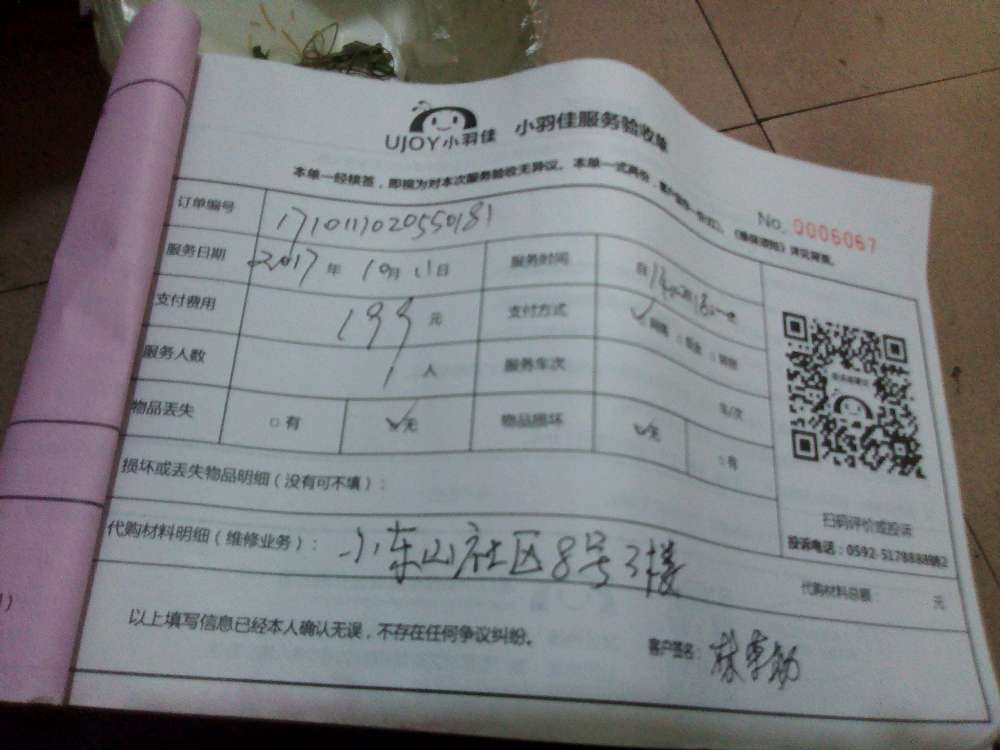 UJOY小羽佳 小羽佳服务验收单
本单一经核签，即视为对本次服务验收无异议。本单一式两份，
No. 0006067
订单编号 171011020550181
服务日期 2017年10月11日 服务时间 自
支付费用 199元 支付方式 ✓网络 □现金 □
服务人数 1人 服务车次 车/次
物品丢失 □有 ✓无 物品损坏 ✓无 □有
损坏或丢失物品明细（没有可不填）：
扫码评价或投诉
投诉电话：0592-5178888
代购材料明细（维修业务）： 小东山社区8号3楼
代购材料总额： 元
以上填写信息已经本人确认无误，不存在任何争议纠纷。
客户签名： 林